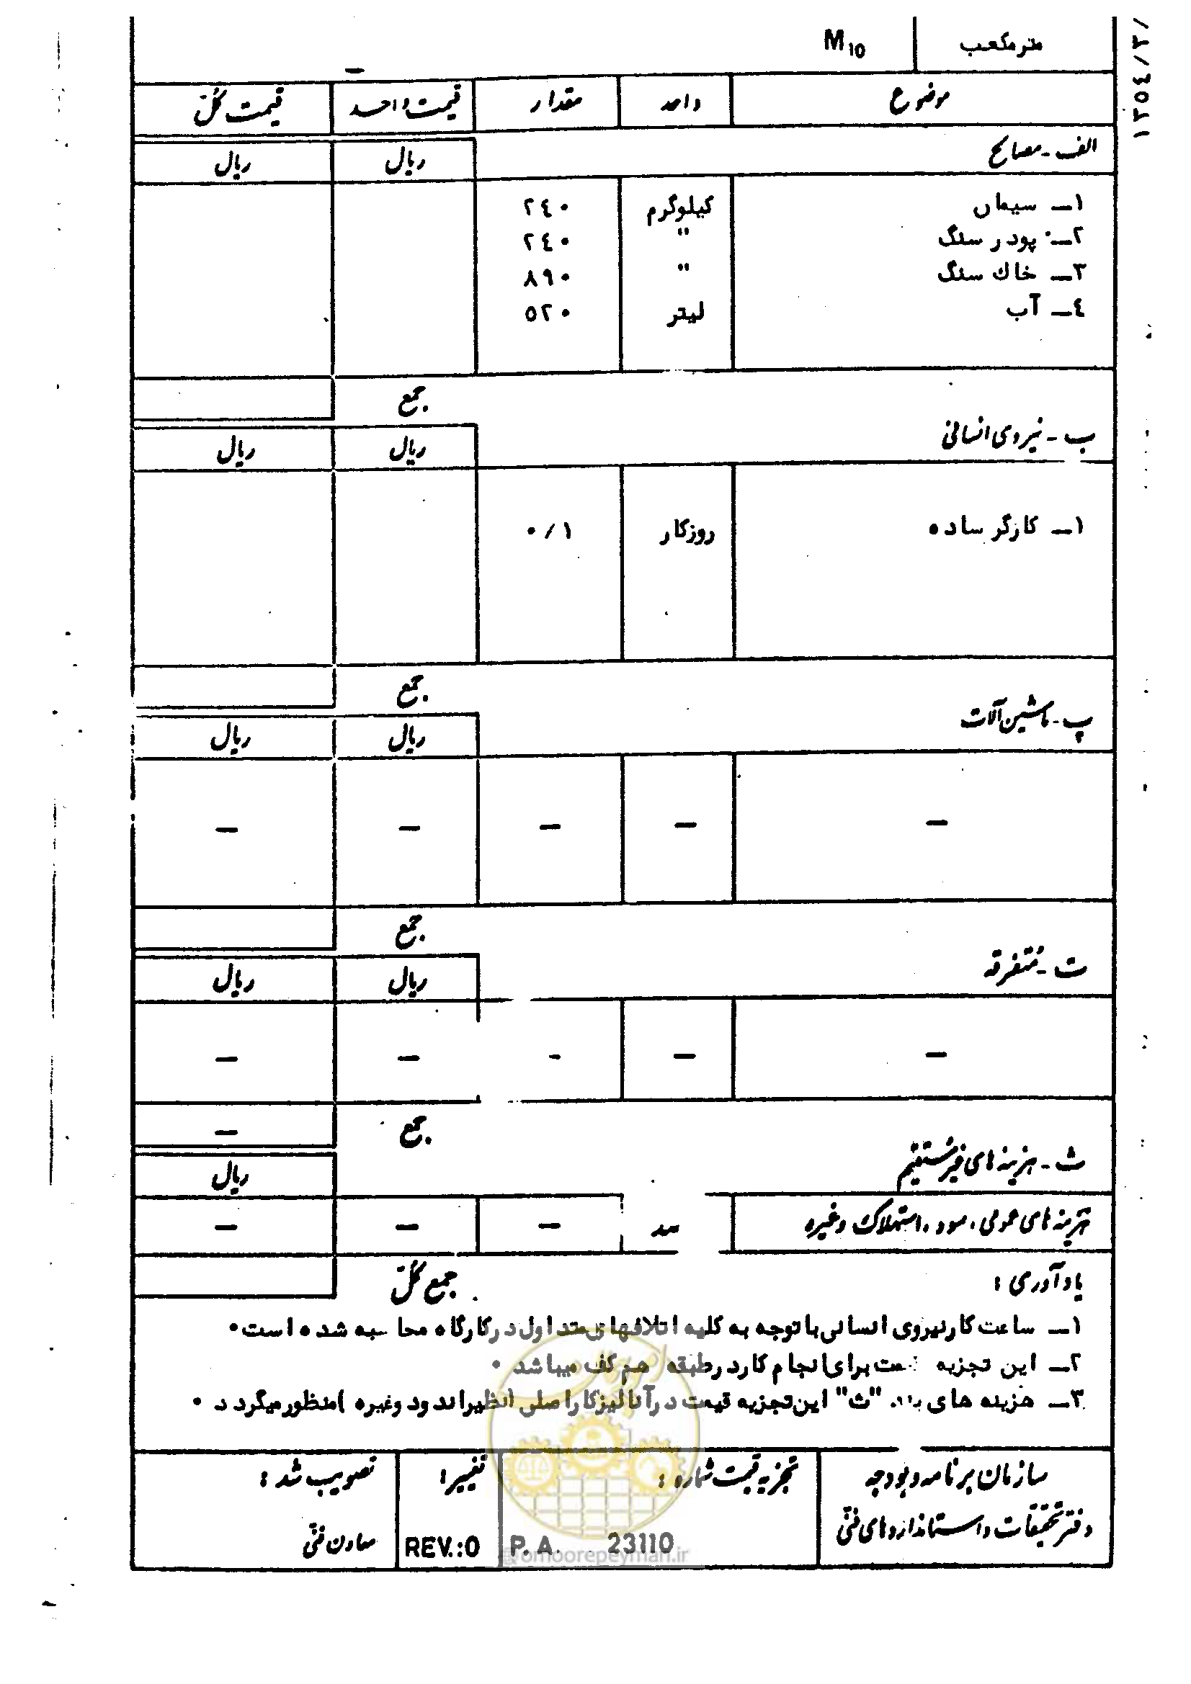 ۱۳۵٤/۳/
مترمکعب M10
موضوع واحد مقدار قیمت واحد قیمت کل
الف - مصالح ریال ریال
۱ــ سیمان کیلوگرم ۲٤۰
۲ــ پودر سنگ " ۲٤۰
۳ــ خاک سنگ " ۸۹۰
٤ــ آب لیتر ۵۲۰
جمع
ب - نیروی انسانی ریال ریال
۱ــ کارگر ساده روزکار ۰/۱
جمع
پ - ماشین آلات ریال ریال
— — — — —
جمع
ت - متفرقه ریال ریال
— — - — —
جمع —
ث - هزینه های غیرمستقیم ریال
هزینه های عمومی، سود، استهلاک وغیره — — —
یادآوری : جمع کل
۱ــ ساعت کارنیروی انسانی باتوجه به کلیه اتلافهای متداول درکارگاه محاسبه شده است۰
۲ــ این تجزیه قیمت برای انجام کار درطبقه هم کف میباشد ۰
۳ــ هزینه های بند "ث" این تجزیه قیمت درآنالیزکاراصلی (نظیراندود وغیره )منظورمیگردد ۰
سازمان برنامه وبودجه تجزیه قیمت شماره : تغییر: تصویب شد :
دفتر تحقیقات واستانداردهای فنی P. A. 23110 REV.:0 معاون فنی
@omoorepeyman.ir